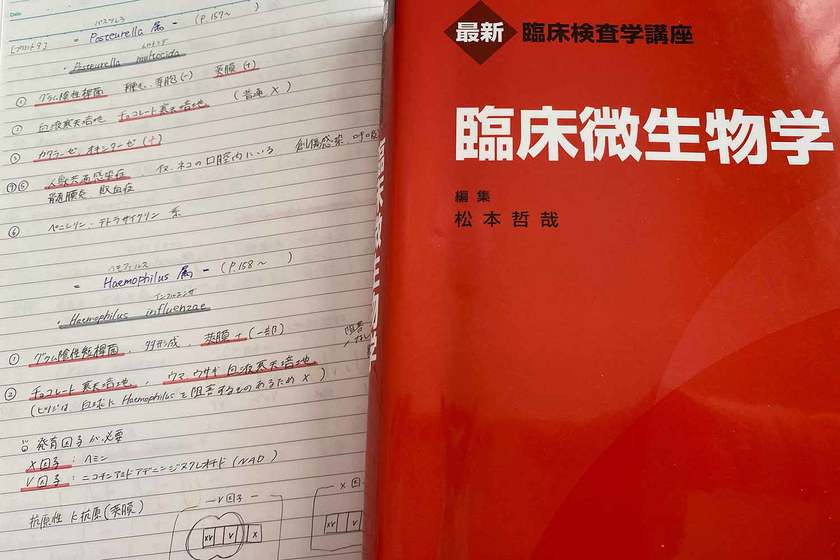 Date
パスツレラ
- Pasteurella 属 - (P.157～)
[プリント9]
ムルトシダ
・Pasteurella multocida
① グラム陰性桿菌 芽胞(-) 莢膜(+)
② 血液寒天培地 チョコレート寒天培地 (普通 X)
③ カタラーゼ オキシダーゼ (+)
④⑤ 人獣共通感染症 イヌ、ネコの口腔内にいる 創傷感染
髄膜炎 敗血症
⑥ ペニシリン、テトラサイクリン 系
ヘモフィルス
- Haemophilus 属 - (P.158～)
インフルエンザ
・Haemophilus influenzae
① グラム陰性短桿菌、多形成、莢膜+(一部)
② チョコレート寒天培地、ウマ、ウサギ 血液寒天培地
(ヒツジは 血球に Haemophilusを阻害するものあるため X)
発育因子が必要
X因子:ヘミン
V因子:ニコチンアミドアデニンジヌクレオチド (NAD)
抗原性 K抗原(莢膜)
V因子
XV V X
X因
XV
最新 臨床検査学講座
臨床微生物学
編集
松本哲哉
臨床微生物学